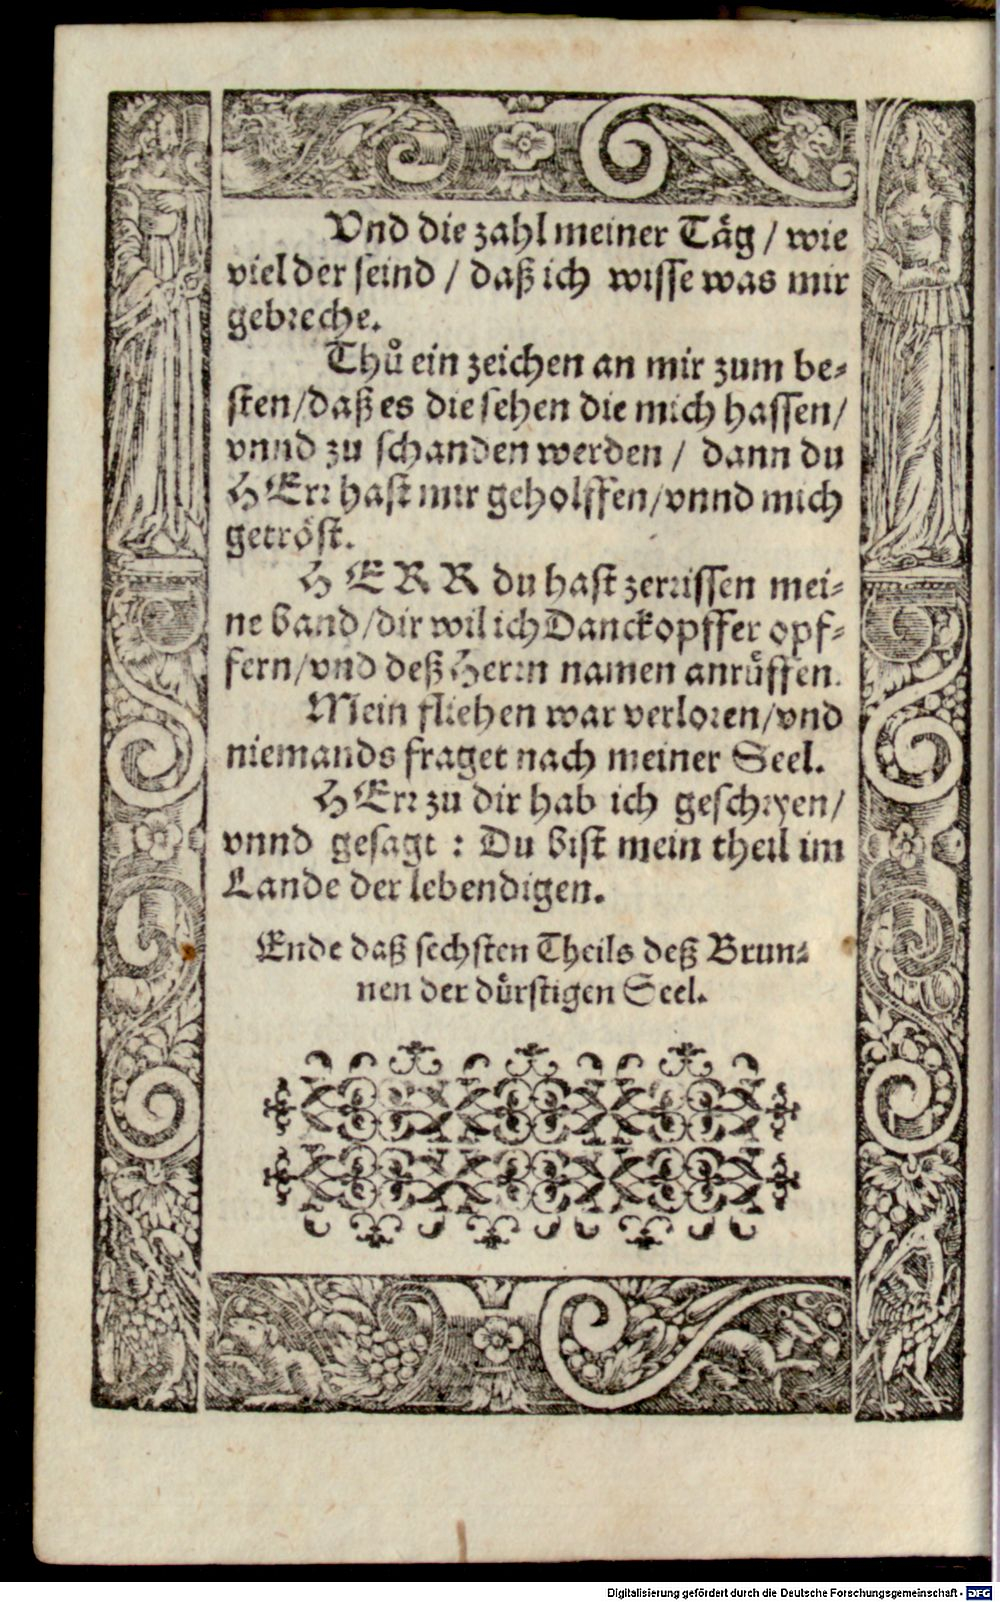 Vnd die zahl meiner Täg / wie
viel der seind / daß ich wisse was mir
gebreche.
Thů ein zeichen an mir zum be-
sten/daß es die sehen die mich hassen/
vnnd zu schanden werden / dann du
HErr hast mir geholffen/vnnd mich
getröst.
HERR du hast zerrissen mei-
ne band/dir wil ich Danckopffer opf-
fern/vnd deß Herrn namen anrüffen.
Mein fliehen war verloren/vnd
niemands fraget nach meiner Seel.
HErr zu dir hab ich geschryen/
vnnd gesagt : Du bist mein theil im
Lande der lebendigen.
Ende daß sechsten Theils deß Brun-
nen der dürstigen Seel.
Digitalisierung gefördert durch die Deutsche Forschungsgemeinschaft - DFG